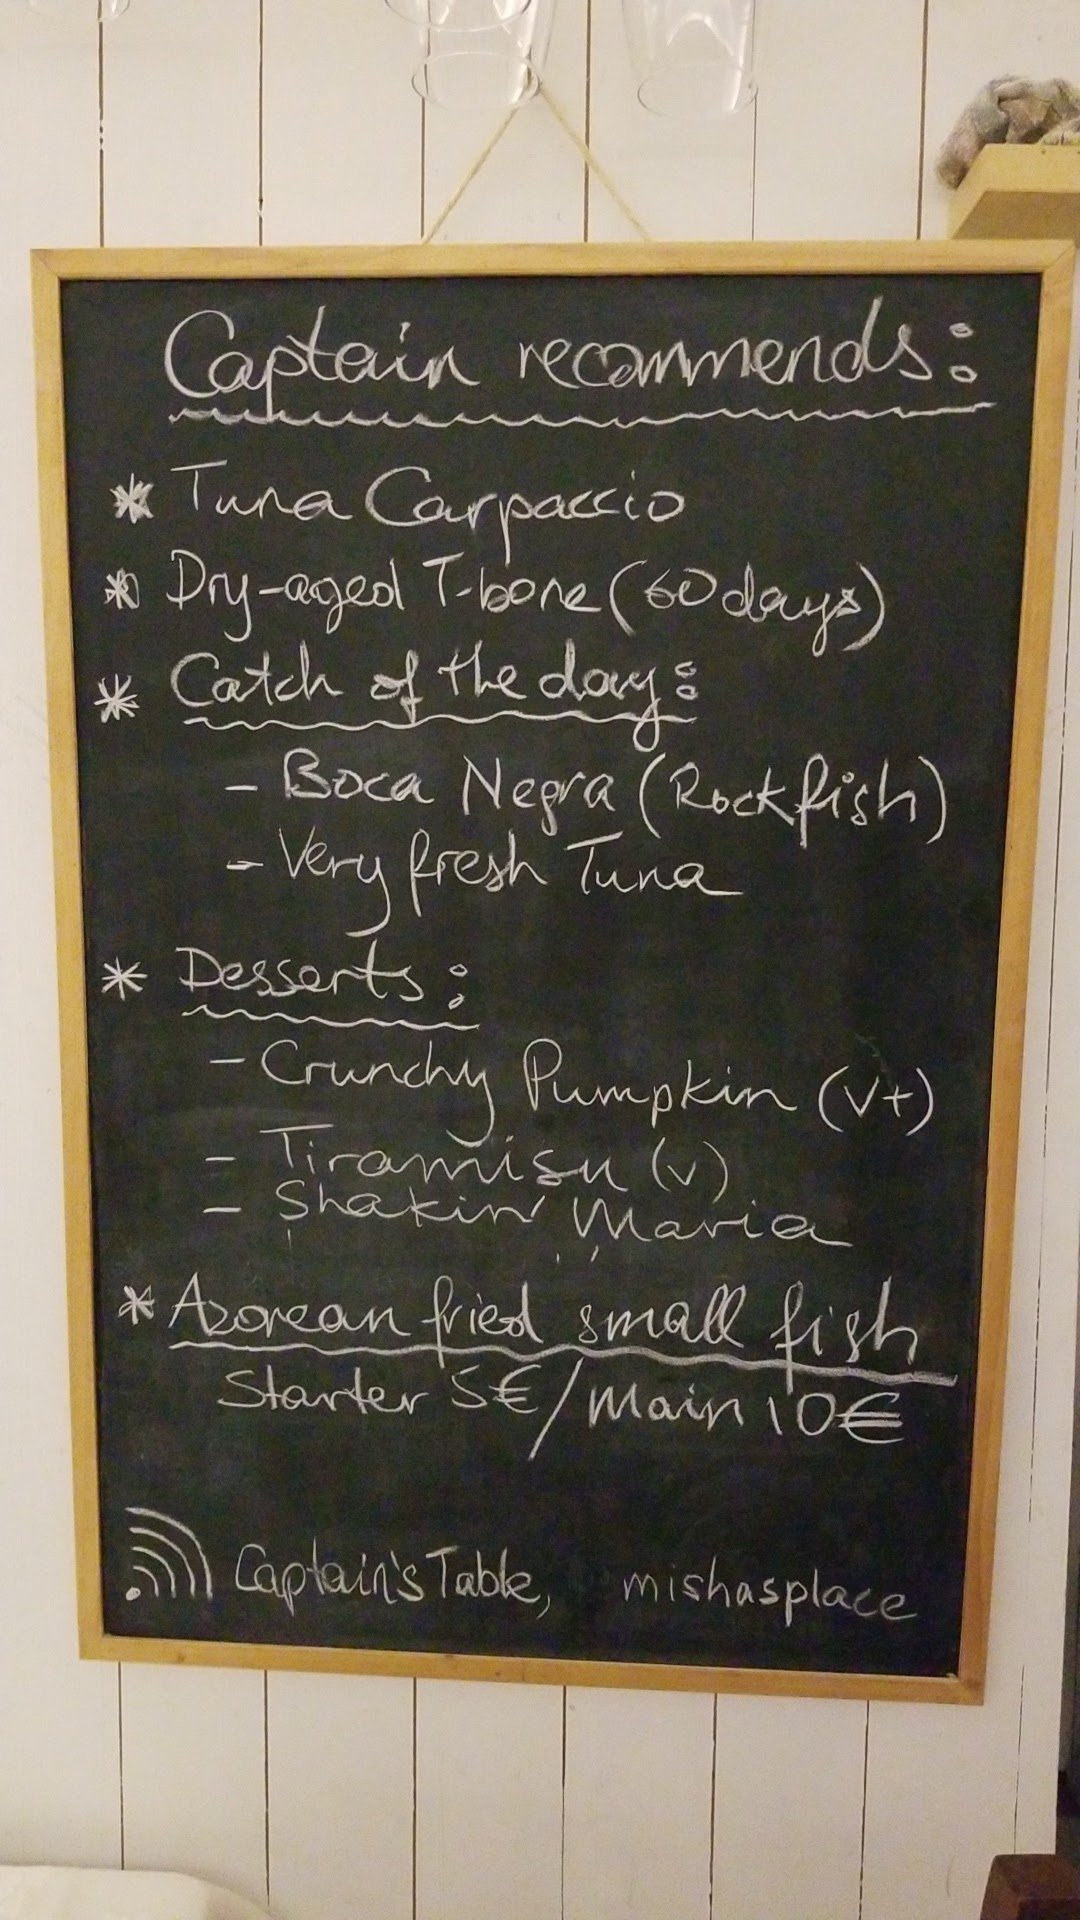 Captain recommends:
* Tuna Carpaccio
* Dry-aged T-bone (60 days)
* Catch of the day:
- Boca Negra (Rockfish)
- Very fresh Tuna
* Desserts:
- Crunchy Pumpkin (V+)
- Tiramisu (V)
- Shakin' Maria
* Azorean fried small fish
Starter 5€/Main 10€
Captain's Table, mishasplace